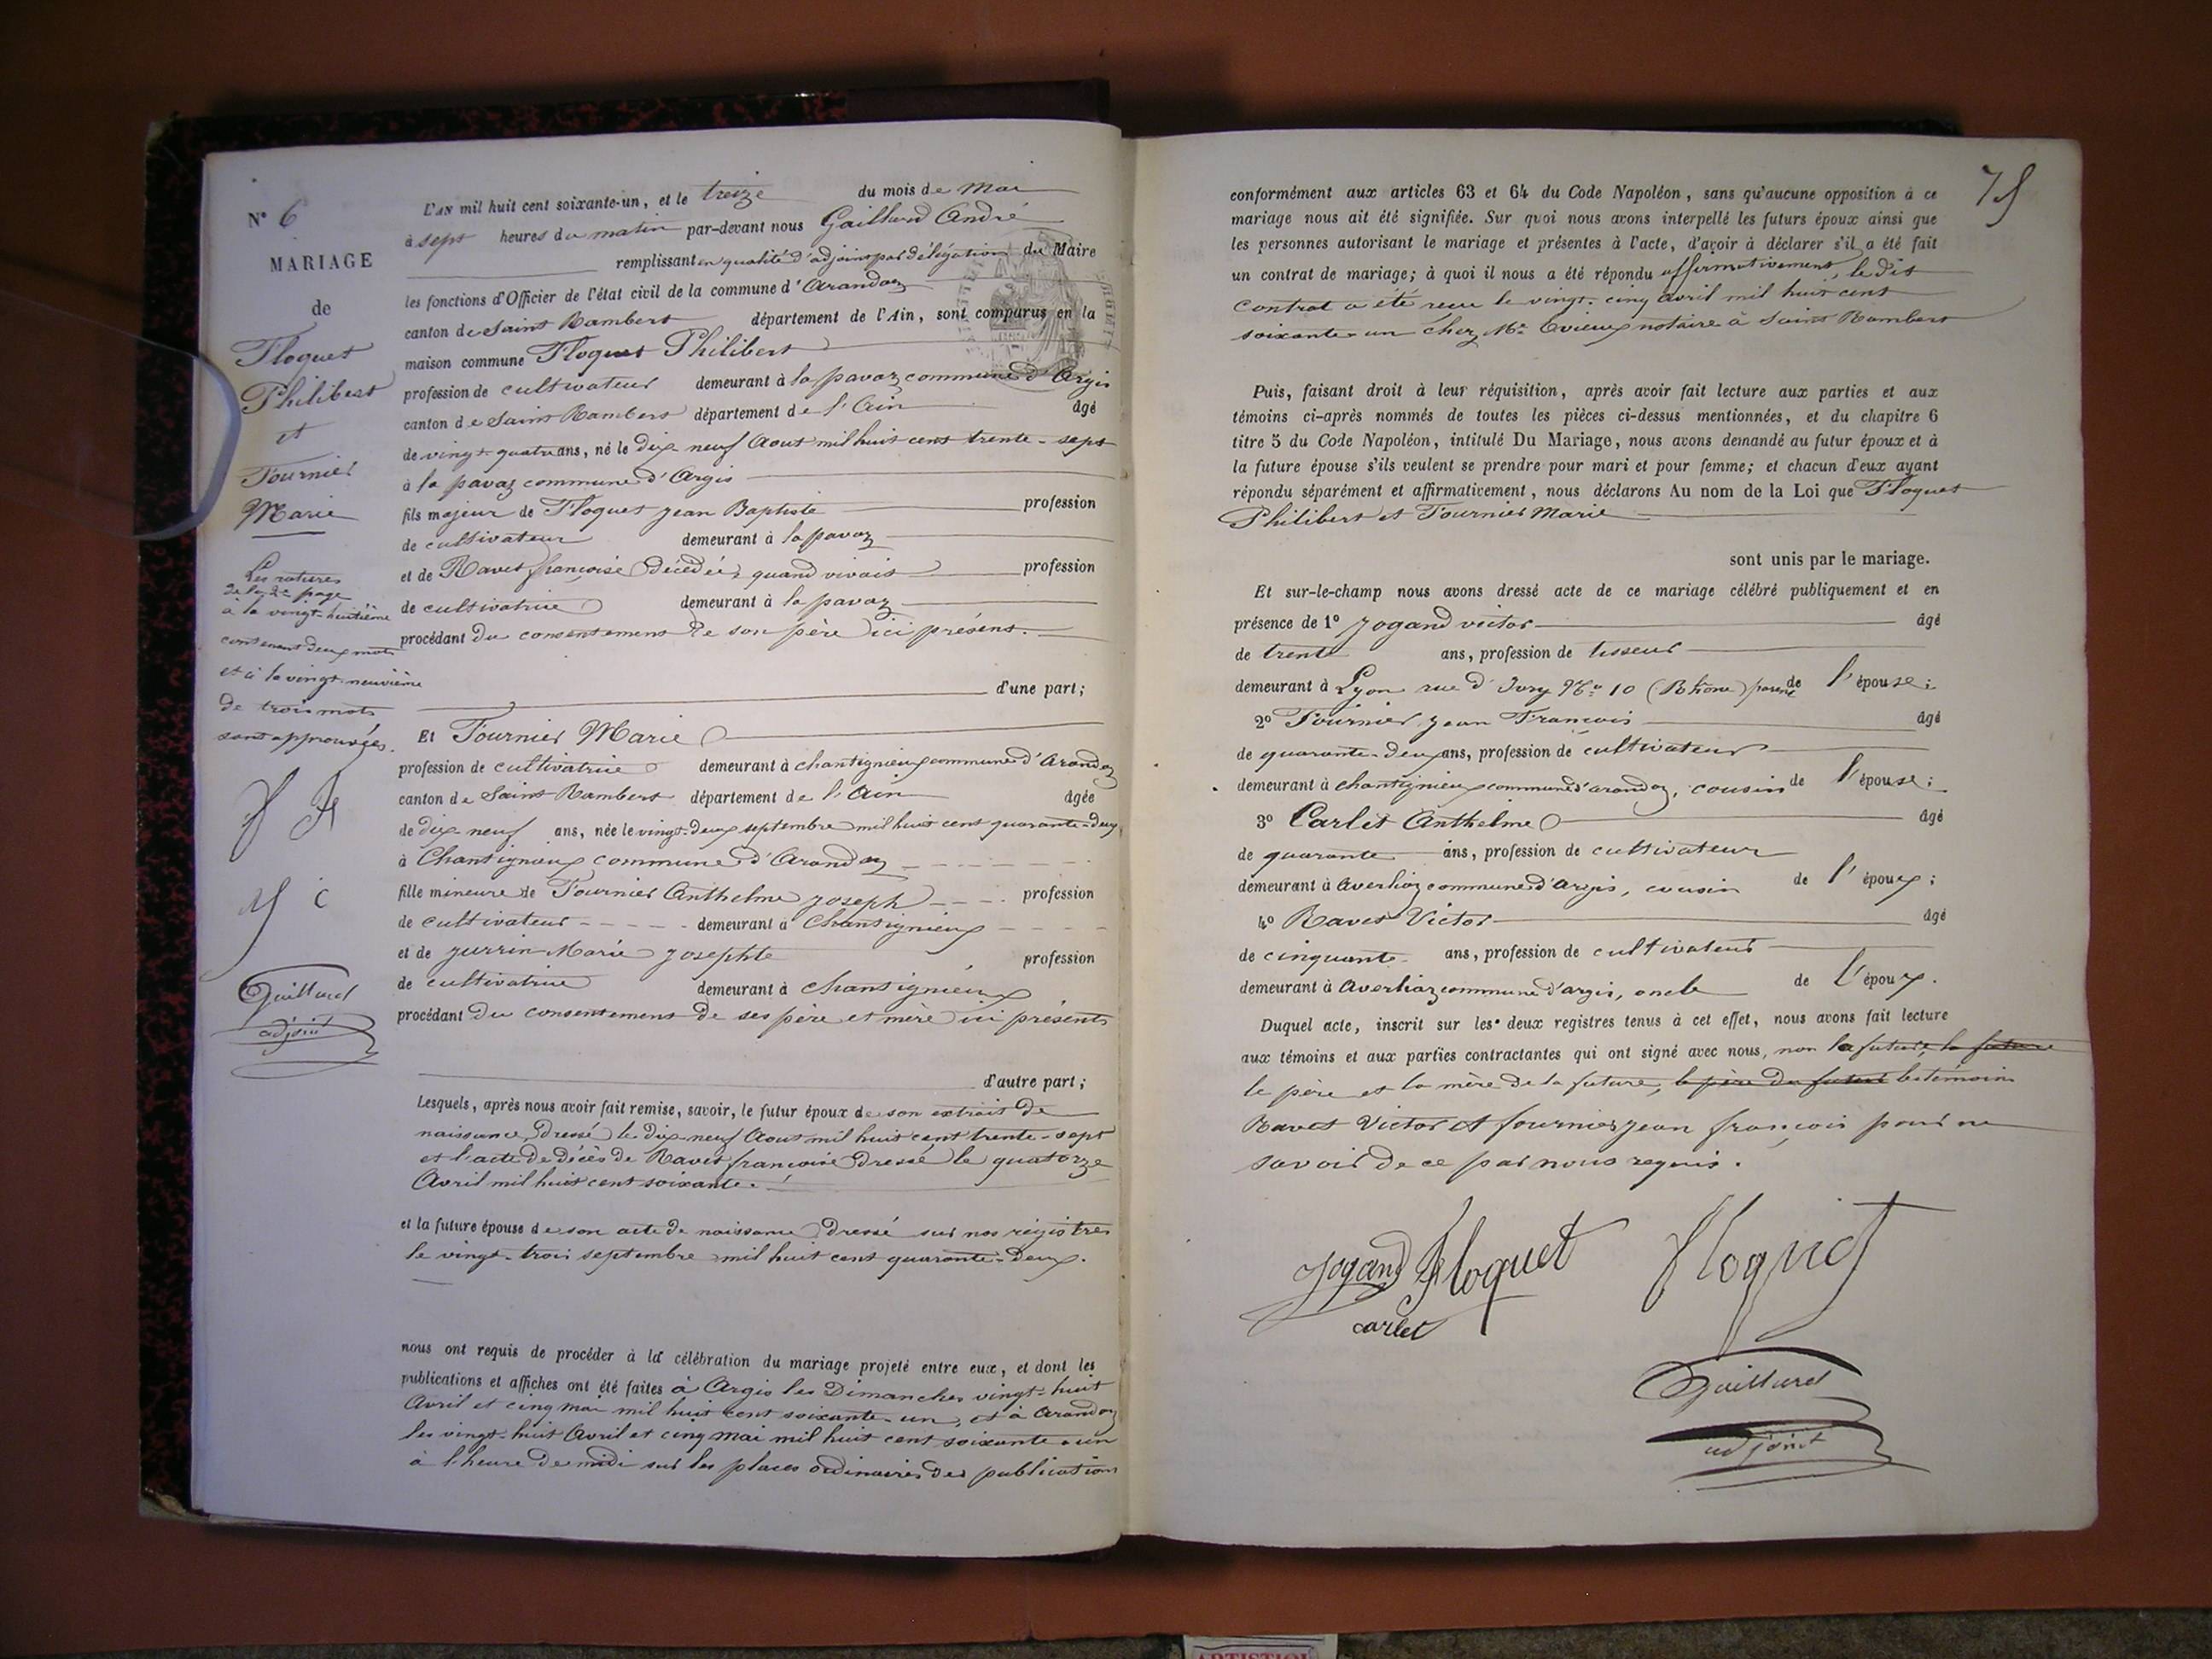 N° 6
MARIAGE
de
Floquet
Philibert
et
Fournier
Marie
Les ratures
de la 2e page
à la vingt-huitième
contenant deux mots
et à la vingt-neuvième
de trois mots
sont approuvées.
f F
J C
Gaillard
adjoint
L'AN mil huit cent soixante-un, et le treize du mois de Mai
à sept heures du matin par-devant nous Gaillard André
remplissant en qualité d'adjoint par délégation du Maire
les fonctions d'Officier de l'état civil de la commune d'Arandaz
canton de Saint Rambert département de l'Ain, sont comparus en la
maison commune Floquet Philibert
profession de cultivateur demeurant à la pavaz commune d'Argis
canton de Saint Rambert département de l'Ain âgé
de vingt-quatre ans, né le dix neuf Aout mil huit cent trente-sept
à la pavaz commune d'Argis
fils majeur de Floquet jean Baptiste profession
de cultivateur demeurant à la pavaz
et de Ravet françoise décédée, quand vivait profession
de cultivatrice demeurant à la pavaz
procédant du consentement de son père ici présent.
d'une part;
Et Fournier Marie
profession de cultivatrice demeurant à chantignieux commune d'Arandaz
canton de Saint Rambert département de l'Ain âgée
de dix-neuf ans, née le vingt-deux septembre mil huit cent quarante-deux
à Chantignieux commune d'Arandaz
fille mineure de Fournier Anthelme joseph profession
de cultivateur demeurant à Chantignieux
et de jurrin Marie josephte profession
de cultivatrice demeurant à chantignieux
procédant du consentement de ses père et mère ici présents
d'autre part;
Lesquels, après nous avoir fait remise, savoir, le futur époux de son extrait de
naissance, dressé le dix-neuf Aout mil huit cent trente-sept
et l'acte de décès de Ravet françoise dressé le quatorze
Avril mil huit cent soixante.
et la future épouse de son acte de naissance dressé sur nos régistres
le vingt-trois septembre mil huit cent quarante-deux.
nous ont requis de procéder à la célébration du mariage projeté entre eux, et dont les
publications et affiches ont été faites à Argis les Dimanches vingt-huit
Avril et cinq mai mil huit cent soixante-un, et à Arandaz
les vingt-huit Avril et cinq mai mil huit cent soixante-un
à l'heure de midi sur les places ordinaires des publications
75
conformément aux articles 63 et 64 du Code Napoléon, sans qu'aucune opposition à ce
mariage nous ait été signifiée. Sur quoi nous avons interpellé les futurs époux ainsi que
les personnes autorisant le mariage et présentes à l'acte, d'avoir à déclarer s'il a été fait
un contrat de mariage; à quoi il nous a été répondu affirmativement, le dit
contrat a été reçu le vingt-cinq Avril mil huit cent
soixante-un chez Me Evieux notaire à Saint Rambert
Puis, faisant droit à leur réquisition, après avoir fait lecture aux parties et aux
témoins ci-après nommés de toutes les pièces ci-dessus mentionnées, et du chapitre 6
titre 5 du Code Napoléon, intitulé Du Mariage, nous avons demandé au futur époux et à
la future épouse s'ils veulent se prendre pour mari et pour femme; et chacun d'eux ayant
répondu séparément et affirmativement, nous déclarons Au nom de la Loi que Floquet
Philibert et Fournier Marie
sont unis par le mariage.
Et sur-le-champ nous avons dressé acte de ce mariage célébré publiquement et en
présence de 1° Jogand victor âgé
de trente ans, profession de tisseur
demeurant à Lyon rue d'Ivry No 10 (Rhône) parent de l'épouse;
2° Fournier jean François âgé
de quarante-deux ans, profession de cultivateur
demeurant à chantignieux commune d'arandaz, cousin de l'épouse;
3° Carlet Anthelme âgé
de quarante ans, profession de cultivateur
demeurant à averliaz commune d'Argis, cousin de l'époux;
4° Ravet Victor âgé
de cinquante ans, profession de cultivateur
demeurant à averliaz commune d'argis, oncle de l'époux.
Duquel acte, inscrit sur les deux registres tenus à cet effet, nous avons fait lecture
aux témoins et aux parties contractantes qui ont signé avec nous, non la future, la future
le père et la mère de la future, le père du futur le témoins
Ravet Victor et fournier jean françois pour ne
savoir de ce par nous requis.
Jogand Floquet Floquet
carlet
Gaillard
adjoint